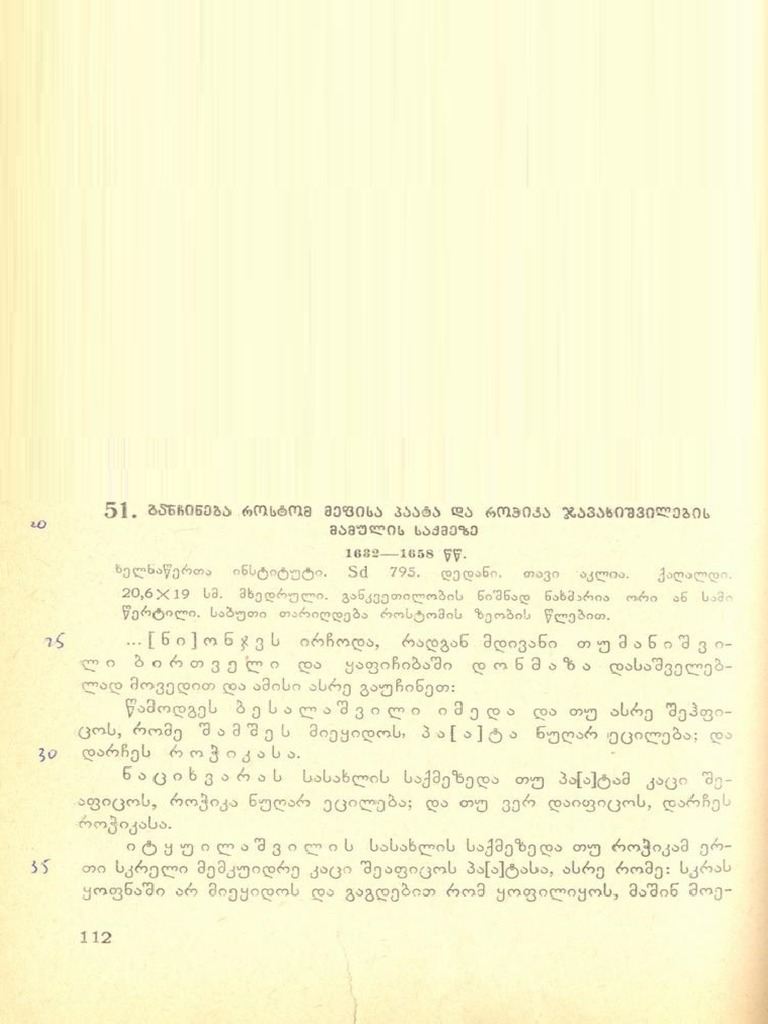 51. განჩინება როსტომ მეფისა პაატა და როჰიკა ჯავახიშვილების
20
მამულის საქმეზე
1632—1658 წწ.
ხელნაწერთა ინსტიტუტი. Sd 795. დედანი. თავი აკლია. ქაღალდი.
20,6×19 სმ. მხედრული. განკვეთილობის ნიშნად ნახმარია ორი ან სამი
წერტილი. საბუთი თარიღდება როსტომის ზეობის წლებით.
25 ...[ნი]ონჯვს ირჩოდა, რადგან მდივანი თუმანიშვი-
ლი ბირთველი და ყაფიჩიბაში დონმაზა დასაშველებ-
ლად მოვედით და ამისი ასრე გაუჩინეთ:
წამოდგეს ბესალაშვილი იმედა და თუ ასრე შეჰფი-
ცოს, რომე შამშეს მიეყიდოს, პა[ა]ტა ნუღარ ეცილება; და
30 დარჩეს როჰიკასა.
ნაციხვარას სასახლის საქმეზედა თუ პა[ა]ტამ კაცი შე-
აფიცოს, როჰიკა ნუღარ ეცილება; და თუ ვერ დაიფიცოს, დარჩეს
როჰიკასა.
იტყუილაშვილის სასახლის საქმეზედა თუ როჰიკამ ერ-
35 თი სკრელი მემკუიდრე კაცი შეაფიცოს პა[ა]ტასა, ასრე რომე: სკრას
ყოფნაში არ მიეყიდოს და გაგდებით რომ ყოფილიყოს, მაშინ მოე-
112